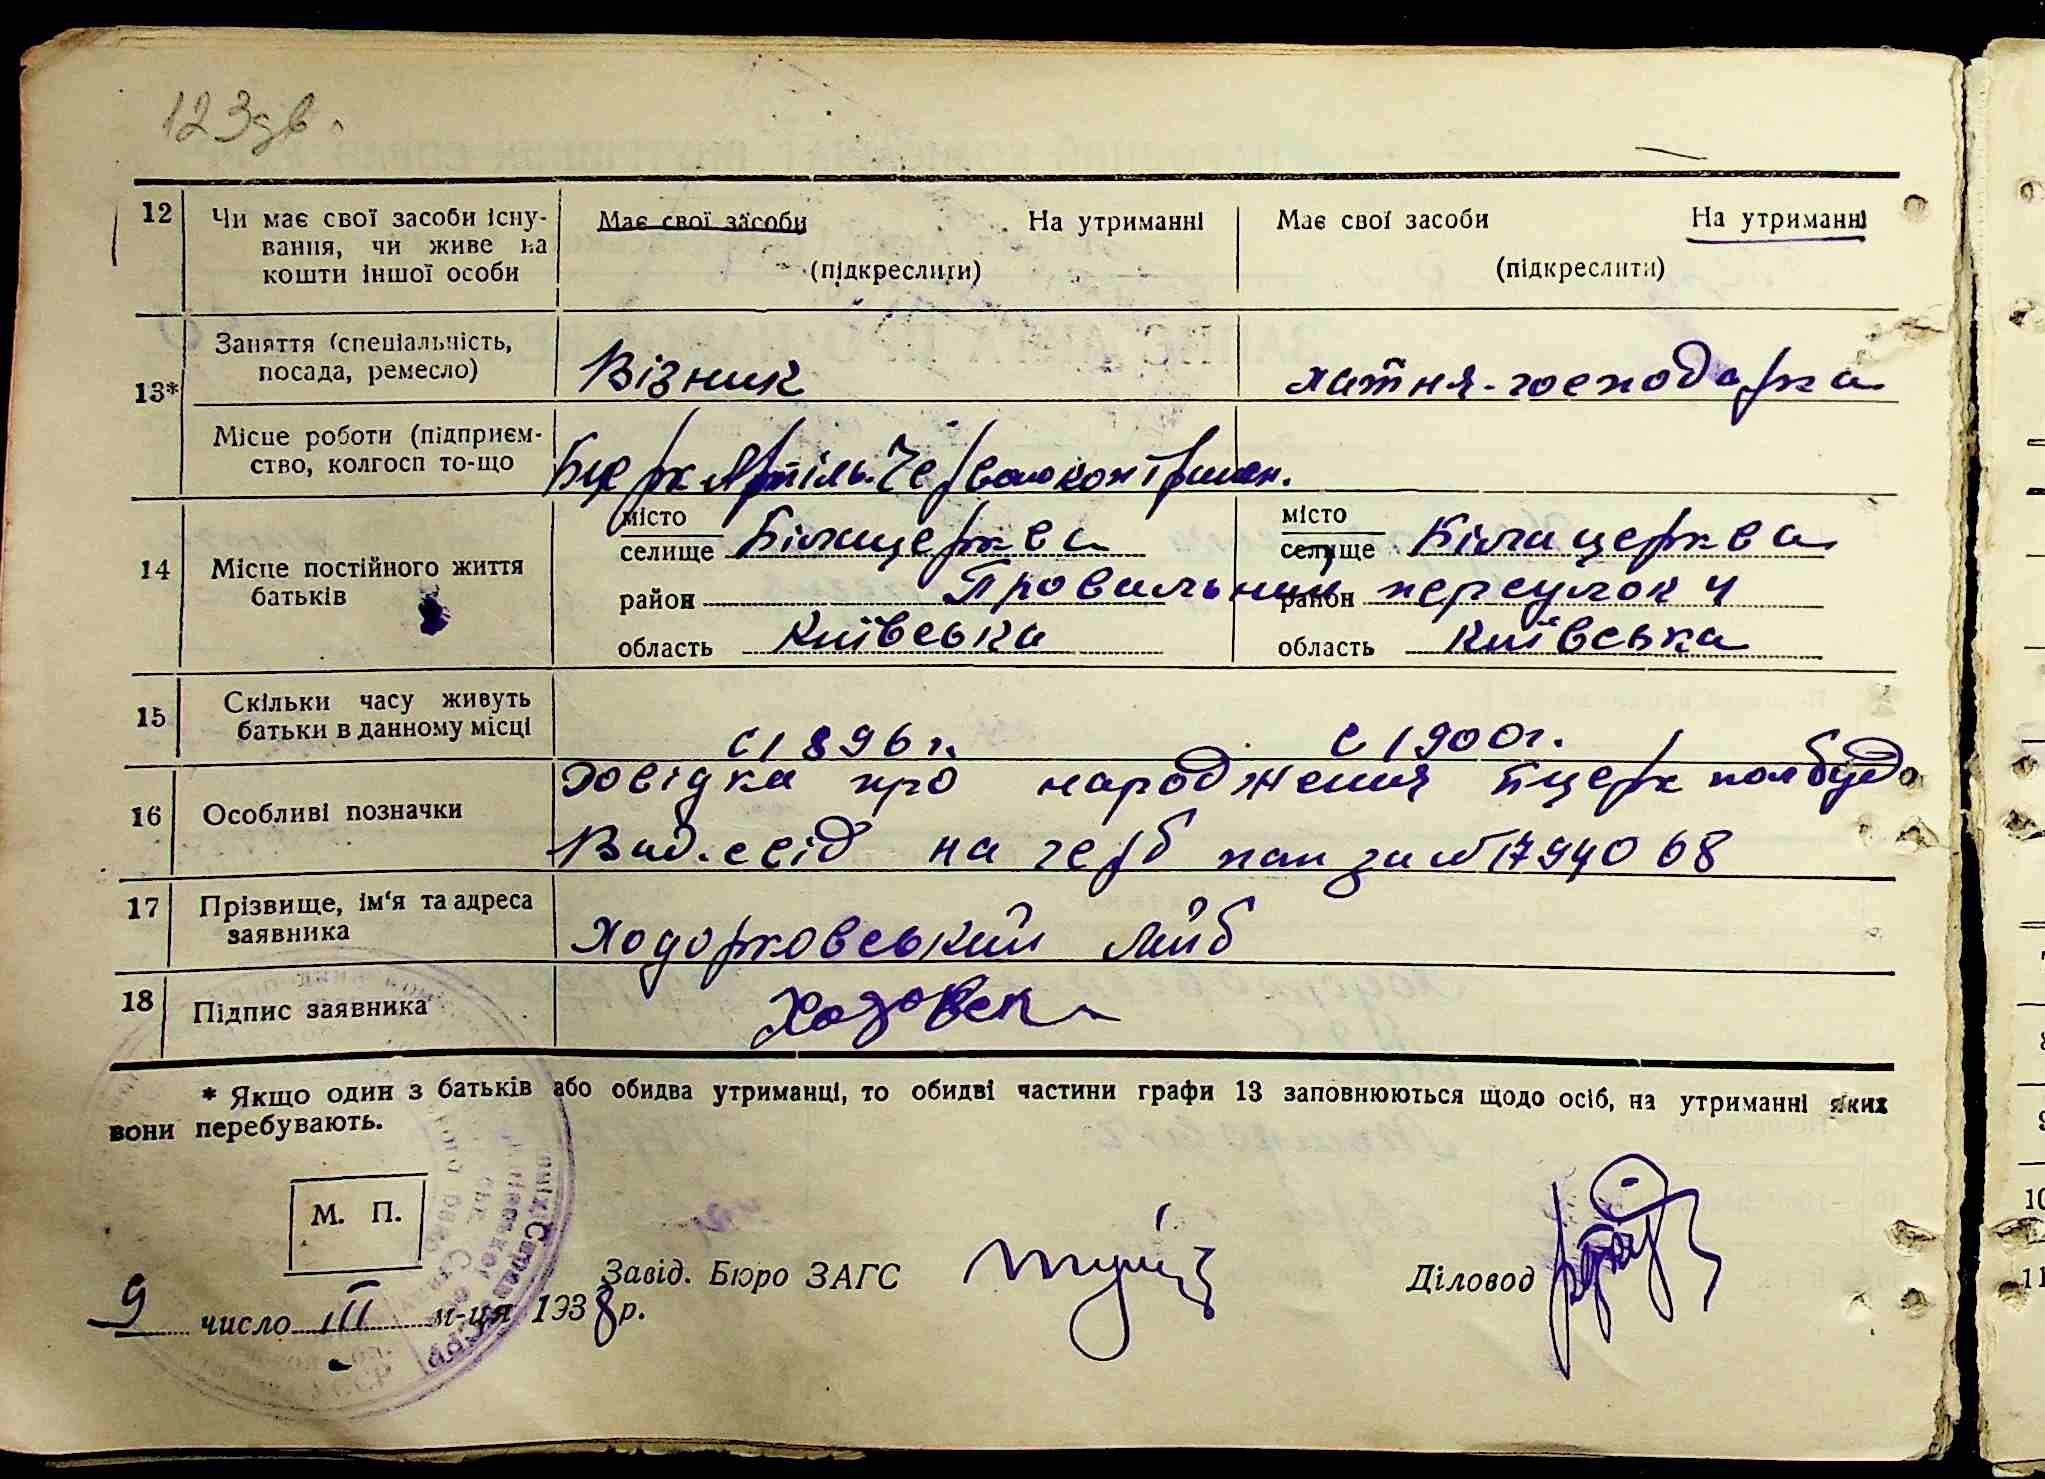 123 зв.
12 Чи має свої засоби існу- Має свої засоби На утриманні Має свої засоби На утриманні
вання, чи живе на
кошти іншої особи (підкреслити) (підкреслити)
13* Заняття (спеціальність,
посада, ремесло) Візник хатня-господарка
Місце роботи (підприєм-
ство, колгосп то-що Бцерк Артіль
14 Місце постійного життя
батьків
місто місто
селище Білацерква селище Білацерква
район Провальний район переулок 4
область Київська область Київська
15 Скільки часу живуть
батьки в данному місці с 1896 г. с 1900 г.
16 Особливі позначки
Довідка про народження Бцерк
Вид. свід на герб пап за № 1794068
17 Прізвище, ім'я та адреса
заявника Ходорковський Лейб
18 Підпис заявника
* Якщо один з батьків або обидва утриманці, то обидві частини графи 13 заповнюються щодо осіб, на утриманні яких
вони перебувають.
М. П.
Завід. Бюро ЗАГС Діловод
9 число III м-ця 1938 р.